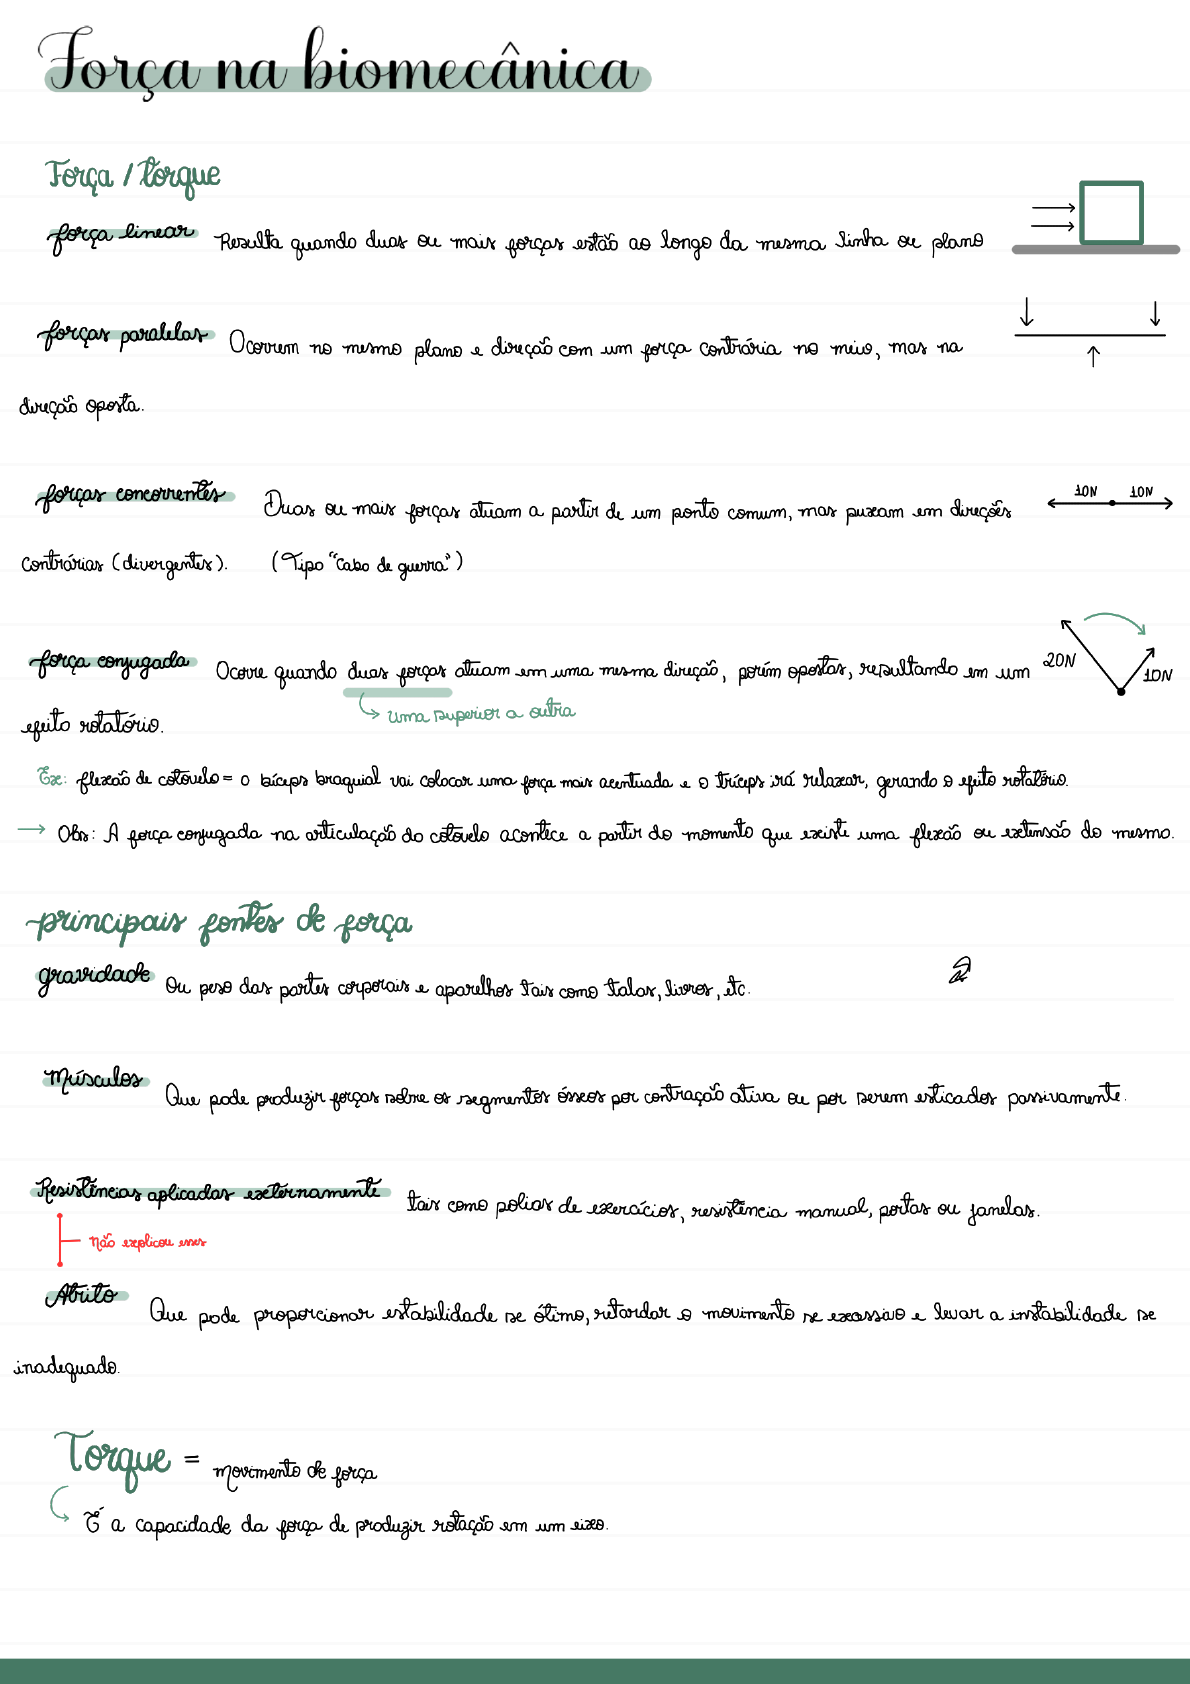 Força na biomecânica
Força / torque
força linear Resulta quando duas ou mais forças estão ao longo da mesma linha ou plano
forças paralelas Ocorrem no mesmo plano e direção com um força contrária no meio, mas na
direção oposta.
forças concorrentes Duas ou mais forças atuam a partir de um ponto comum, mas puxam em direções
10N 10N
contrárias (divergentes). (Tipo "cabo de guerra")
força conjugada Ocorre quando duas forças atuam em uma mesma direção, porém opostas, resultando em um
20N 10N
uma superior a outra
efeito rotatório.
Ex: flexão de cotovelo = o bíceps braquial vai colocar uma força mais acentuada e o tríceps irá relaxar, gerando o efeito rotatório.
→ Obs: A força conjugada na articulação do cotovelo acontece a partir do momento que existe uma flexão ou extensão do mesmo.
principais fontes de força
gravidade Ou peso das partes corporais e aparelhos tais como talas, livros, etc.
Músculos Que pode produzir forças sobre os segmentos ósseos por contração ativa ou por serem esticados passivamente.
Resistências aplicadas externamente tais como polias de exercícios, resistência manual, portas ou janelas.
não explicou esses
Atrito Que pode proporcionar estabilidade se ótimo, retardar o movimento se excessivo e levar a instabilidade se
inadequado.
Torque = movimento de força
É a capacidade da força de produzir rotação em um eixo.